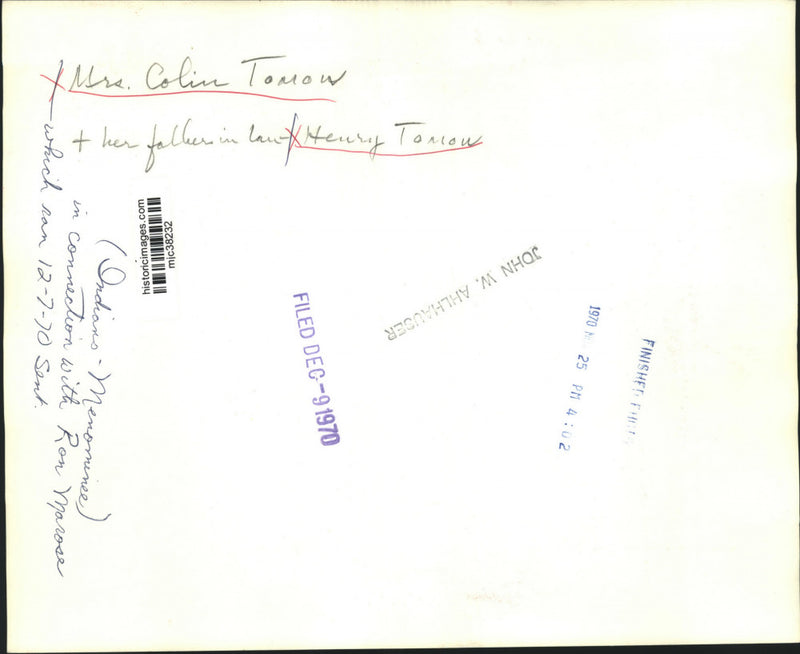 Mrs. Colin Tomow
+ her father in law Henry Tomow
(Indians - Menominee)
in connection with Ron Marose
which ran 12-7-70 Sent.
historicimages.com
mjc38232
FILED DEC -9 1970
JOHN W. AHLHAUSER
1970 25 PM 4:02
FINISHED